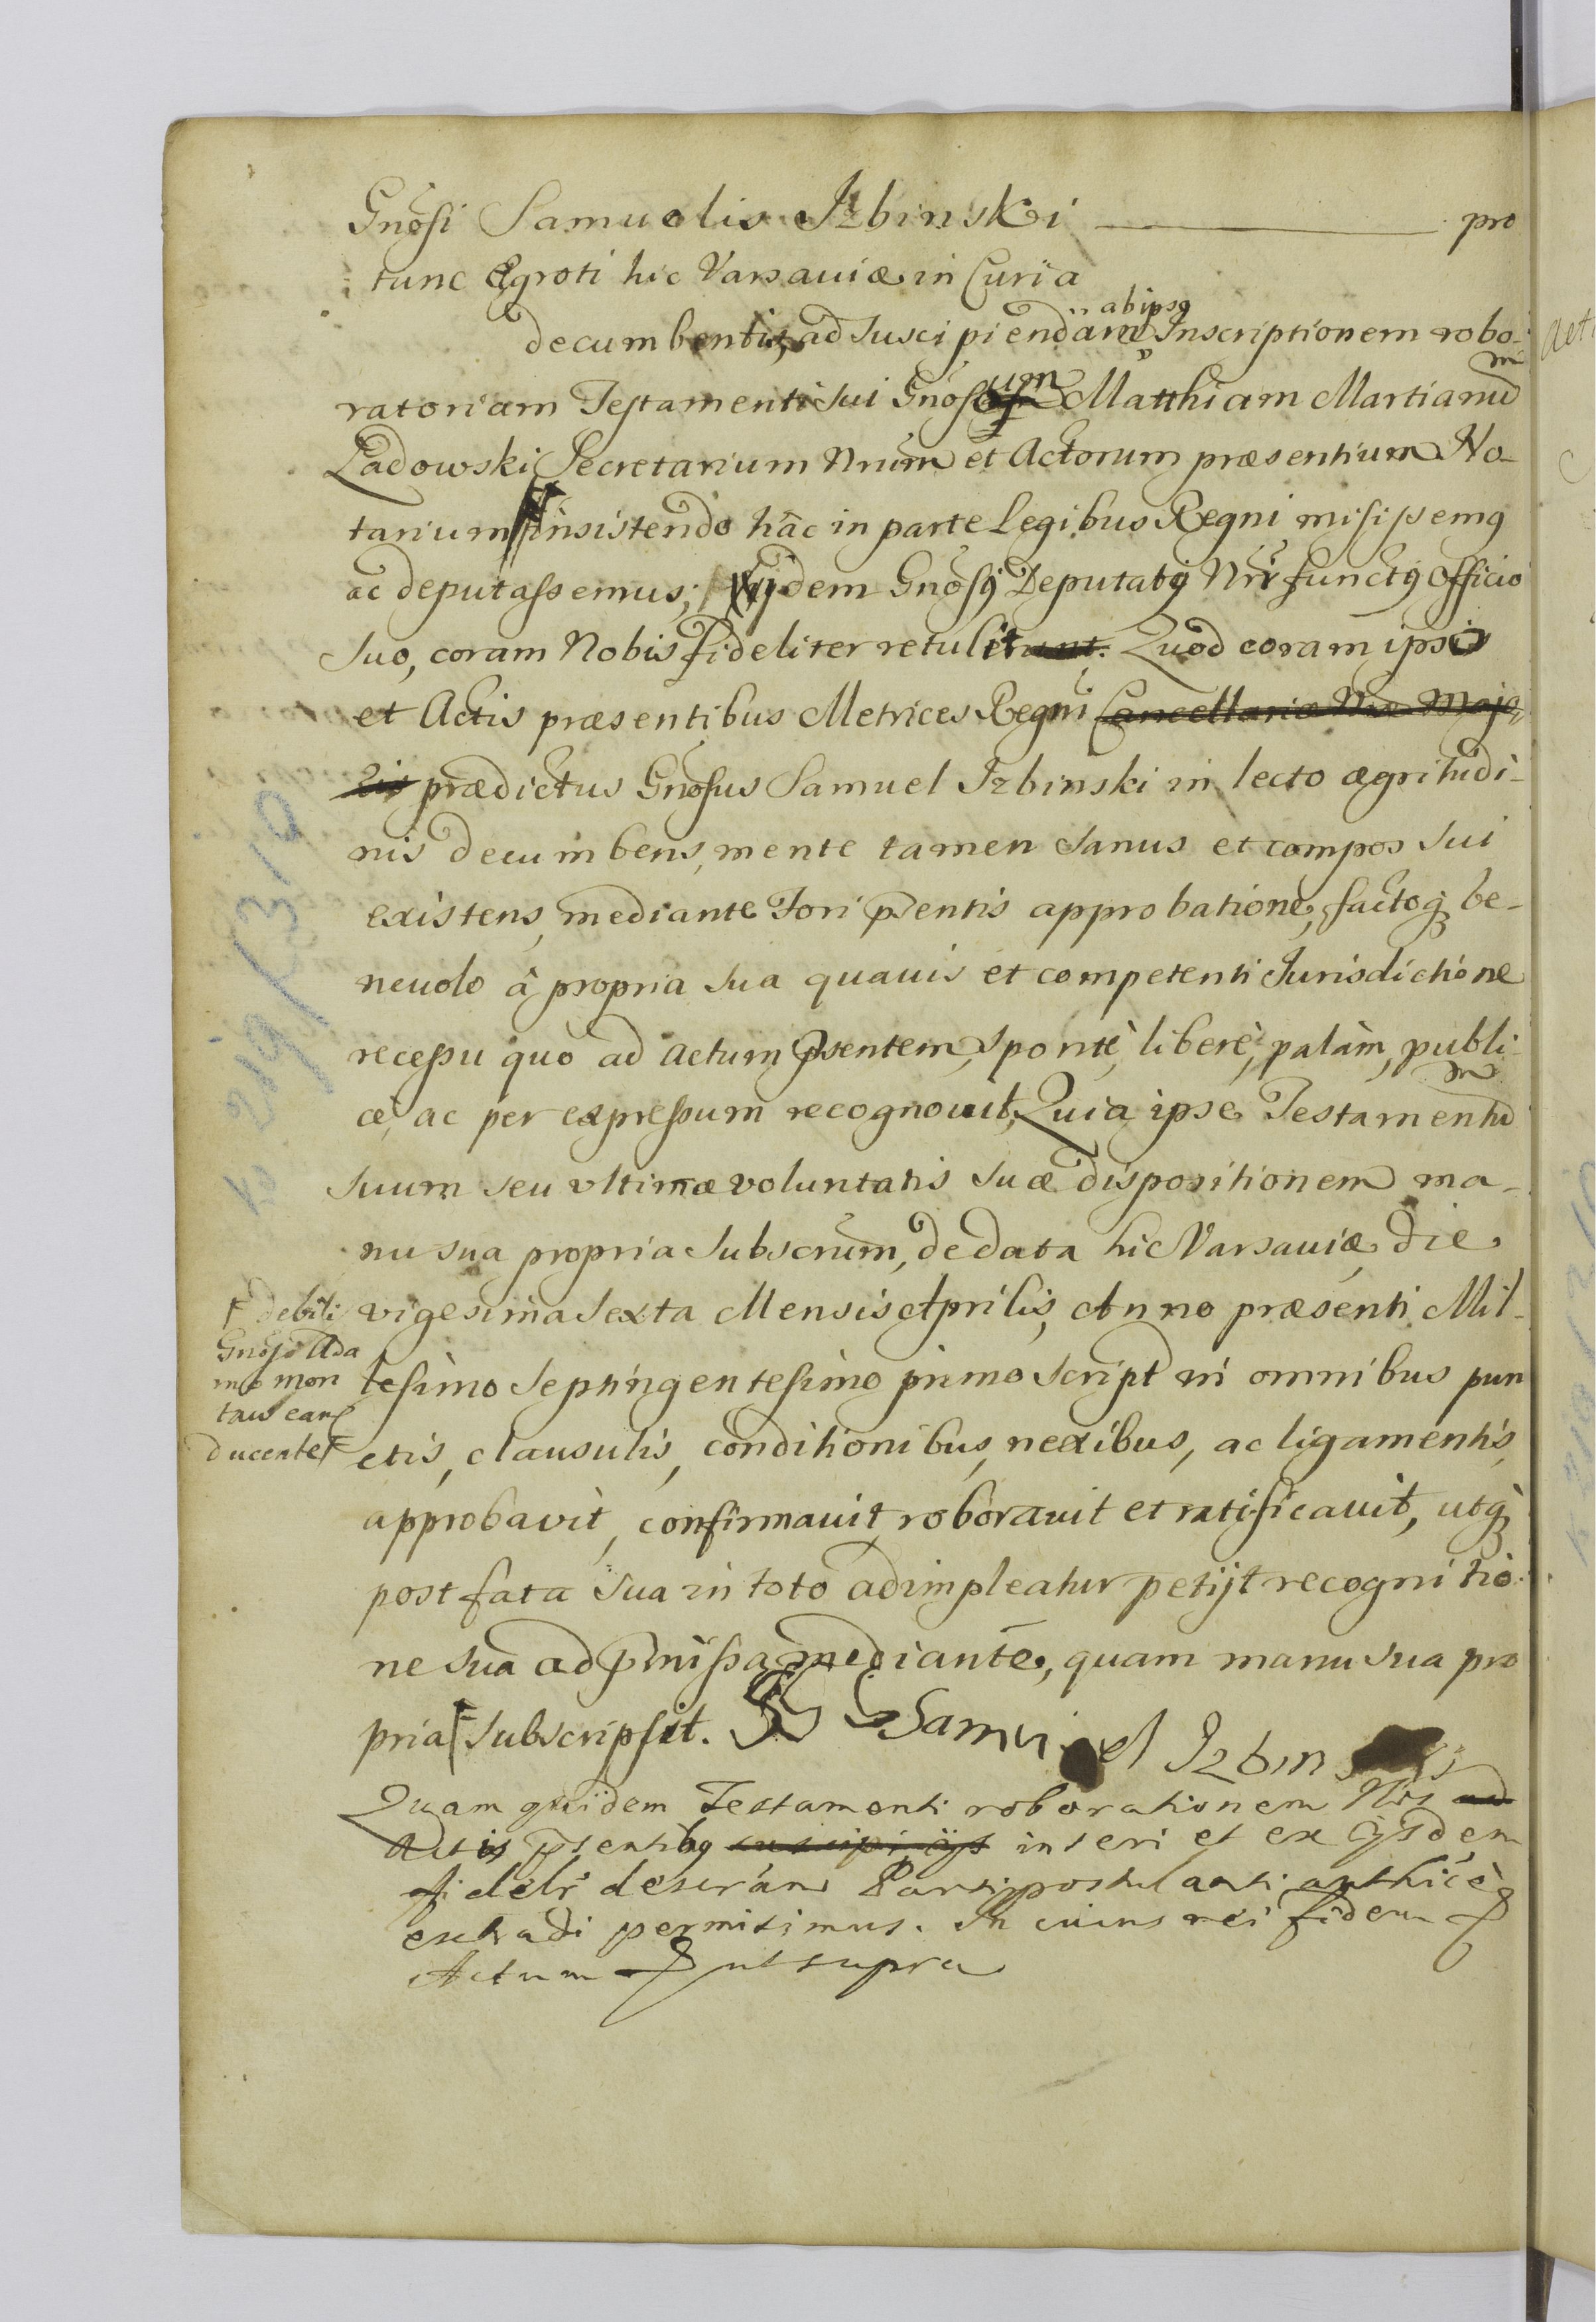 Gnosi Samuelis Izbinski ——— pro
tunc ægroti hic Varsaviæ in Curia
ab ipso
decumbentis, ad suscipiendam Inscriptionem robo-
ratoriam Testamenti sui Gnosum Matthiam Martianum
Ładowski Secretarium Nrum et Actorum præsentium No-
tarium insistendo hâc in parte Legibus Regni misissemq
ac deputassemus; Gnosq Deputatq Nr functq Officio
suo, coram Nobis fideliter retulit. Quod coram ipso
et Actis præsentibus Metrices Regni Cancellariæ Nræ Majo
ris prædictus Gnosus Samuel Izbinski in lecto ægritudi-
nis decumbens, mente tamen sanus et compos sui
existens, mediante Fori pñsentis approbatione, factoq be-
nevolo â propria sua quavis et competenti Jurisdictione
recessu quo ad actum pñsentem, spontè, liberè, palàm, publi-
cè, ac per expressum recognovit, Quia ipse Testamentum
suum seu ultimæ voluntatis suæ dispositionem ma-
nu sua propria subscrum, de data hic Varsaviæ die
vigesima sexta Mensis Aprilis, Anno præsenti Mil-
lesimo Septingentesimo primo script in omnibus pun
ctis, clausulis, conditionibus, nexibus, ac ligamentis,
approbavit, confirmavit, roboravit et ratificavit, utq
post fata sua in toto adimpleatur petijt recognitio-
ne sua ad pmissa mediante, quam manu sua pro
pria subscripsit. Samuel Izbinski
debili
Gnoso Ada
mo Mon
taw eam
ducente
Quam quidem Testamenti roborationem Nos ad
Actis pñsentibq suscipi inseri et ex ijsdem
fideli descrãm Parti postulanti authĩcè
extradi permisimus. In cuius rei fidem
Actum ut supra